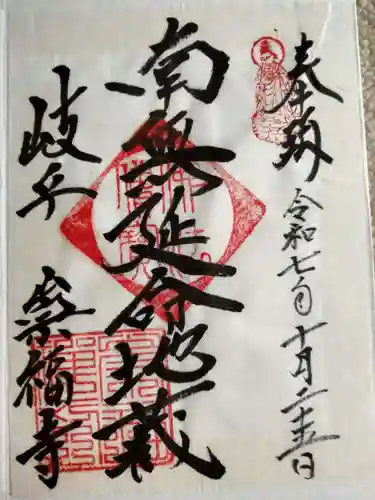 奉拝
令和七旬十月二十五日
南無延命地蔵
岐阜
崇福寺